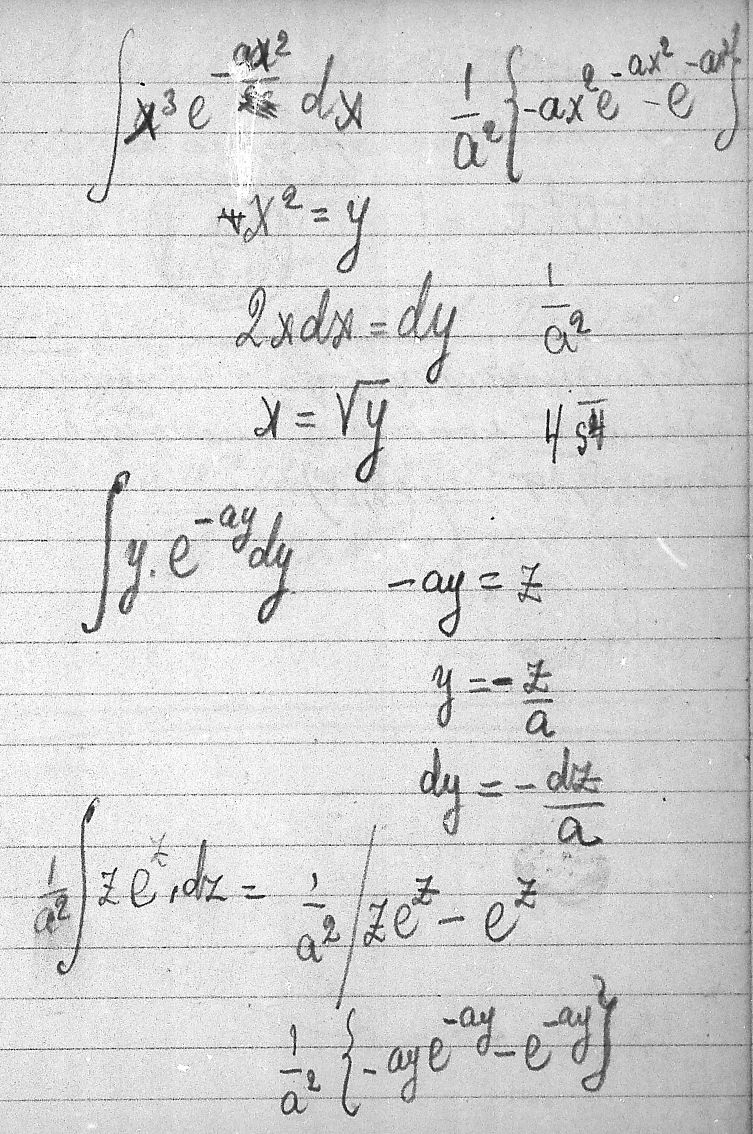 ∫ x³ e^(-ax²) dx    1/a² {-ax²e^(-ax²) - e^(-ax²)}
x² = y
2xdx = dy    1/a²
x = √y    4
∫ y. e^(-ay) dy    -ay = z
y = - z/a
dy = - dz/a
1/a² ∫ z e^z . dz = 1/a² / ze^z - e^z
1/a² {-aye^(-ay) - e^(-ay)}